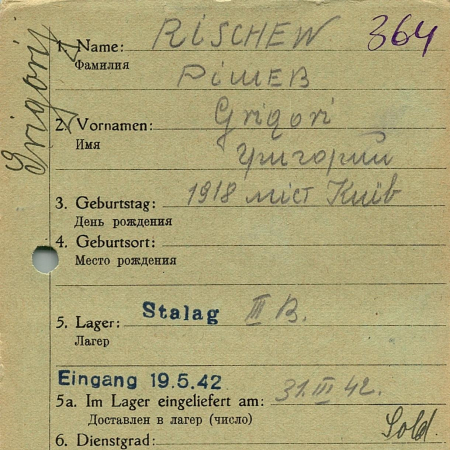 Grigorij
1. Name: RISCHEW 364
Фамилия
РІШЕВ
2. Vornamen: Grigori
Имя
Григорий
3. Geburtstag: 1918 міст Київ
День рождения
4. Geburtsort:
Место рождения
5. Lager: Stalag III B.
Лагер
Eingang 19.5.42
5a. Im Lager eingeliefert am: 31.III 42.
Доставлен в лагер (число)
6. Dienstgrad: Sold.